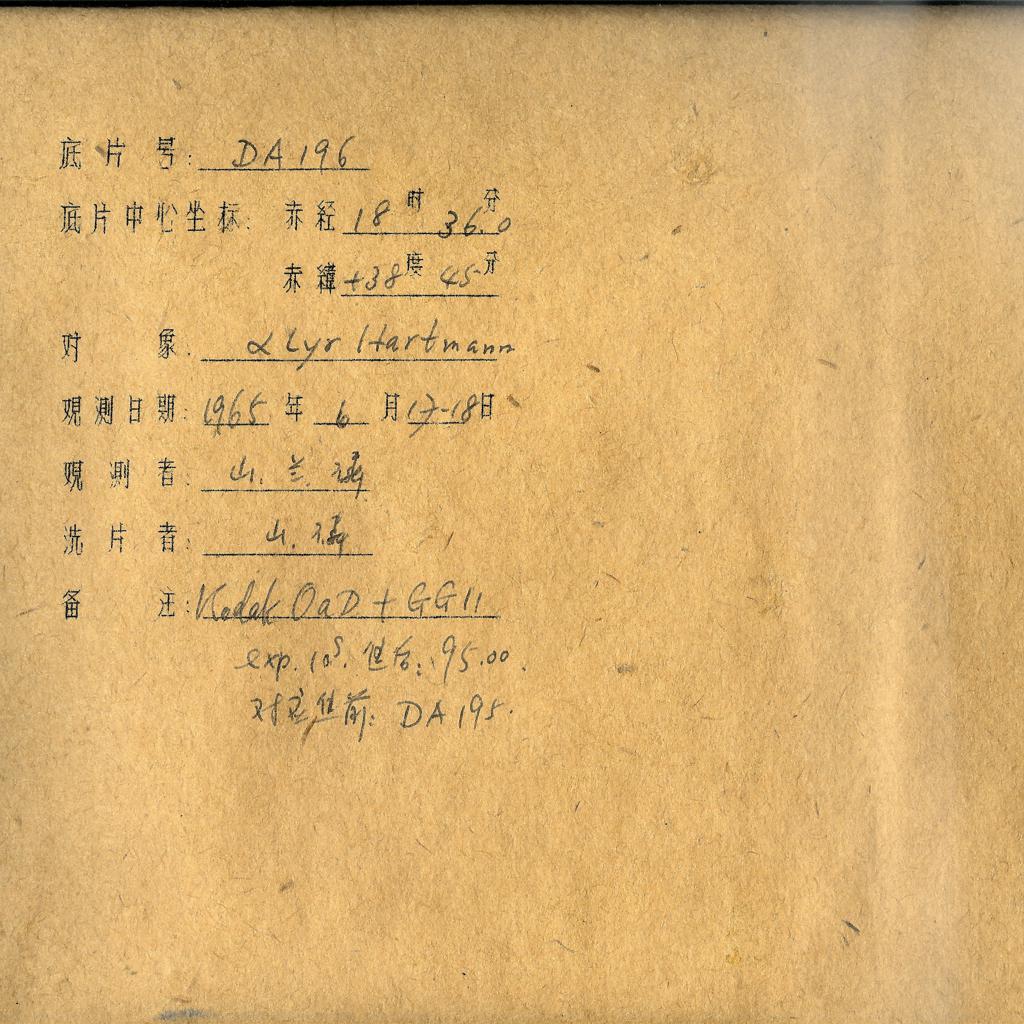 底片号: DA 196
底片中心坐标: 赤经 18时 36.0分
赤纬 +38度 45分
对象: α Lyr Hartmann
观测日期: 1965年 6月17-18日
观测者: 山. 兰.
洗片者: 山.
备注: Kodak OaD + GG11
exp. 10s. 焦后: 95.00.
对应焦前: DA 195.